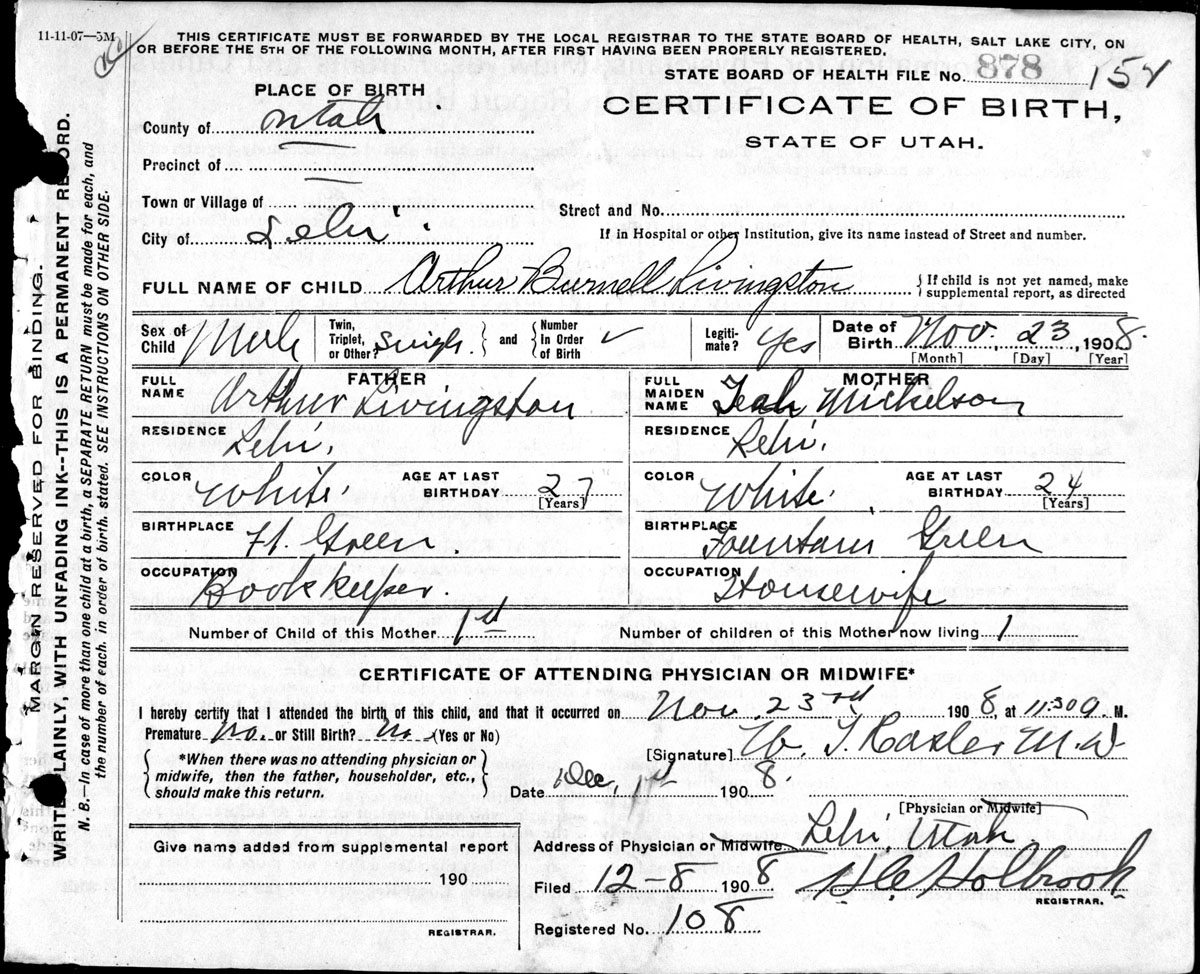 11-11-07—5M
THIS CERTIFICATE MUST BE FORWARDED BY THE LOCAL REGISTRAR TO THE STATE BOARD OF HEALTH, SALT LAKE CITY, ON
OR BEFORE THE 5TH OF THE FOLLOWING MONTH, AFTER FIRST HAVING BEEN PROPERLY REGISTERED.
STATE BOARD OF HEALTH FILE No. 878 154
PLACE OF BIRTH
CERTIFICATE OF BIRTH,
STATE OF UTAH.
County of Utah
Precinct of —
Town or Village of
Street and No.
City of Lehi
If in Hospital or other Institution, give its name instead of Street and number.
FULL NAME OF CHILD Arthur Burnell Livingston { If child is not yet named, make
supplemental report, as directed
Sex of Child Male Twin, Triplet, or Other? Single } and { Number In Order of Birth ✓ Legiti-mate? Yes Date of Birth Nov. 23, 1908.
[Month] [Day] [Year]
FATHER
FULL NAME Arthur Livingston
MOTHER
FULL MAIDEN NAME Leah Mickelson
RESIDENCE Lehi.
RESIDENCE Lehi.
COLOR White. AGE AT LAST BIRTHDAY 27 [Years]
COLOR White. AGE AT LAST BIRTHDAY 24 [Years]
BIRTHPLACE Ft. Green.
BIRTHPLACE Fountain Green
OCCUPATION Bookkeeper.
OCCUPATION Housewife
Number of Child of this Mother 1st
Number of children of this Mother now living 1
CERTIFICATE OF ATTENDING PHYSICIAN OR MIDWIFE*
I hereby certify that I attended the birth of this child, and that it occurred on Nov. 23rd 1908, at 11:30 a. M.
Premature No. or Still Birth? No. (Yes or No)
*When there was no attending physician or
midwife, then the father, householder, etc.,
should make this return.
[Signature] W. T. Hasler M.D.
Date Dec. 1st 1908.
[Physician or Midwife]
Address of Physician or Midwife Lehi, Utah
Give name added from supplemental report
190
REGISTRAR.
Filed 12-8 1908 H C Holbrook
REGISTRAR.
Registered No. 108
MARGIN RESERVED FOR BINDING.
WRITE PLAINLY, WITH UNFADING INK--THIS IS A PERMANENT RECORD.
N. B.—In case of more than one child at a birth, a SEPARATE RETURN must be made for each, and
the number of each, in order of birth, stated. SEE INSTRUCTIONS ON OTHER SIDE.